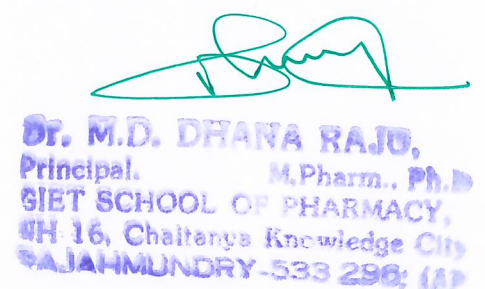 Dr. M.D. DHANA RAJU,
Principal. M.Pharm., Ph.D
GIET SCHOOL OF PHARMACY,
NH-16, Chaitanya Knowledge City
RAJAHMUNDRY-533 296; (AP